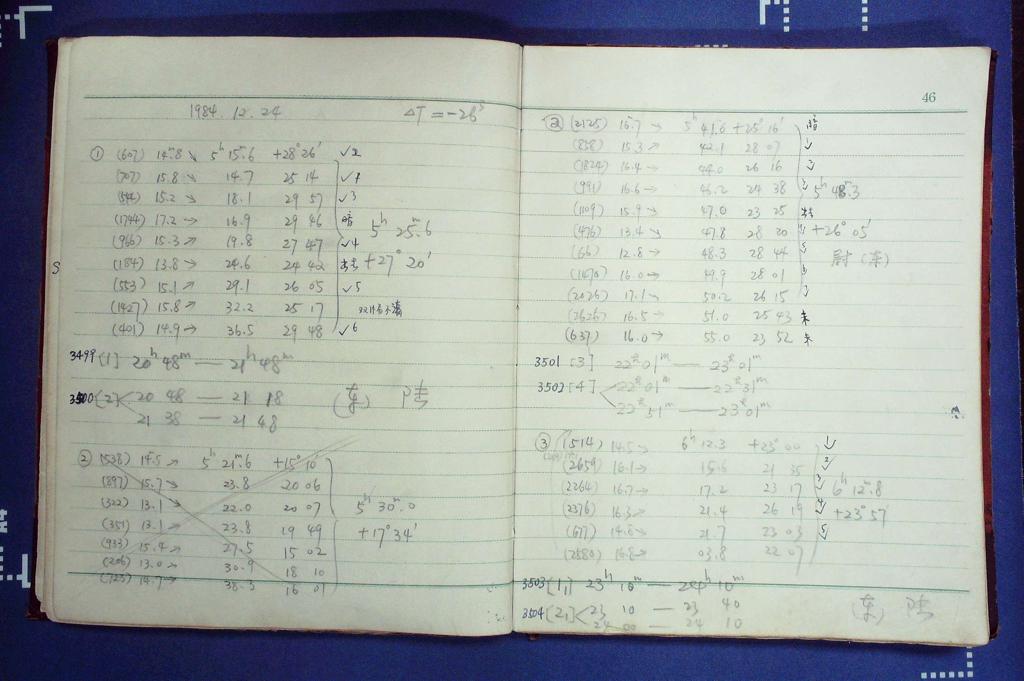 1984. 12. 24 ΔT = -26ˢ
① (607) 14ᵐ.8 ↘ 5ʰ 15ᵐ.6 +28° 26′ ✓2
(707) 15.8 ↘ 14.7 25 14 ✓1
15.2 → 18.1 29 57 ✓3
(1744) 17.2 → 16.9 29 46 暗
5ʰ 25ᵐ.6
(966) 15.3 ↗ 19.8 27 47 ✓4
(184) 13.8 → 24.6 24 42 +27° 20′
(553) 15.1 ↗ 29.1 26 05 ✓5
(1427) 15.8 → 32.2 25 17
(401) 14.9 → 36.5 29 48 ✓6
S
3499 [1] 20ʰ 48ᵐ — 21ʰ 48ᵐ
3500 [2] < 20 48 — 21 18 (东) 陆
21 38 — 21 48
② (538) 14ᵐ.5 → 5ʰ 21ᵐ.6 +15° 10′
(897) 15.7 → 23.8 20 06
(322) 13.1 22.0 20 07
5ʰ 30ᵐ.0
(351) 13.1 → 23.8 19 49
+17° 34′
(933) 15.4 ↗ 27.5 15 02
(206) 13.0 ↗ 30.9 18 10
14.7 → 38.3 16 01
46
② (2125) 16ᵐ.7 ↘ 5ʰ 41ᵐ.6 +25° 16′ 暗
(858) 15.3 ↗ 42.1 28 07
(1824) 16.4 → 44.0 26 16
(991) 16.6 → 24 38
5ʰ 48ᵐ.3
(1109) 15.9 ↘ 47.0 23 25
(476) 13.4 ↘ 47.8 28 20 +26° 05′
(66) 12.8 → 48.3 28 44
尉 (东)
(1470) 16.0 → 49.9 28 01
(2026) 17.1 ↘ 50.2 26 15
(2626) 16.5 ↘ 51.0 25 43 未
(637) 16.0 → 55.0 23 52 未
3501 [3] 22ʰ 01ᵐ — 23ʰ 01ᵐ
3502 [4] < 22ʰ 01ᵐ — 22ʰ 31ᵐ
22ʰ 51ᵐ — 23ʰ 01ᵐ
③ (1514) 14.5 ↘ 6ʰ 12.3 +23° 00
(2659) 16.1 → 15.6 21 35
(2264) 16.7 → 17.2 23 17
6ʰ 12ᵐ.8
(2376) 16.3 ↗ 21.4 26 19
+23° 57′
(677) 14.6 ↘ 21.7 23 03
(2880) 16.8 → 03.8 22 07
3503 [1] 23ʰ 10ᵐ — 24ʰ 10ᵐ
3504 [2] < 23 10 — 23 40 (东) 陆
24 00 — 24 10